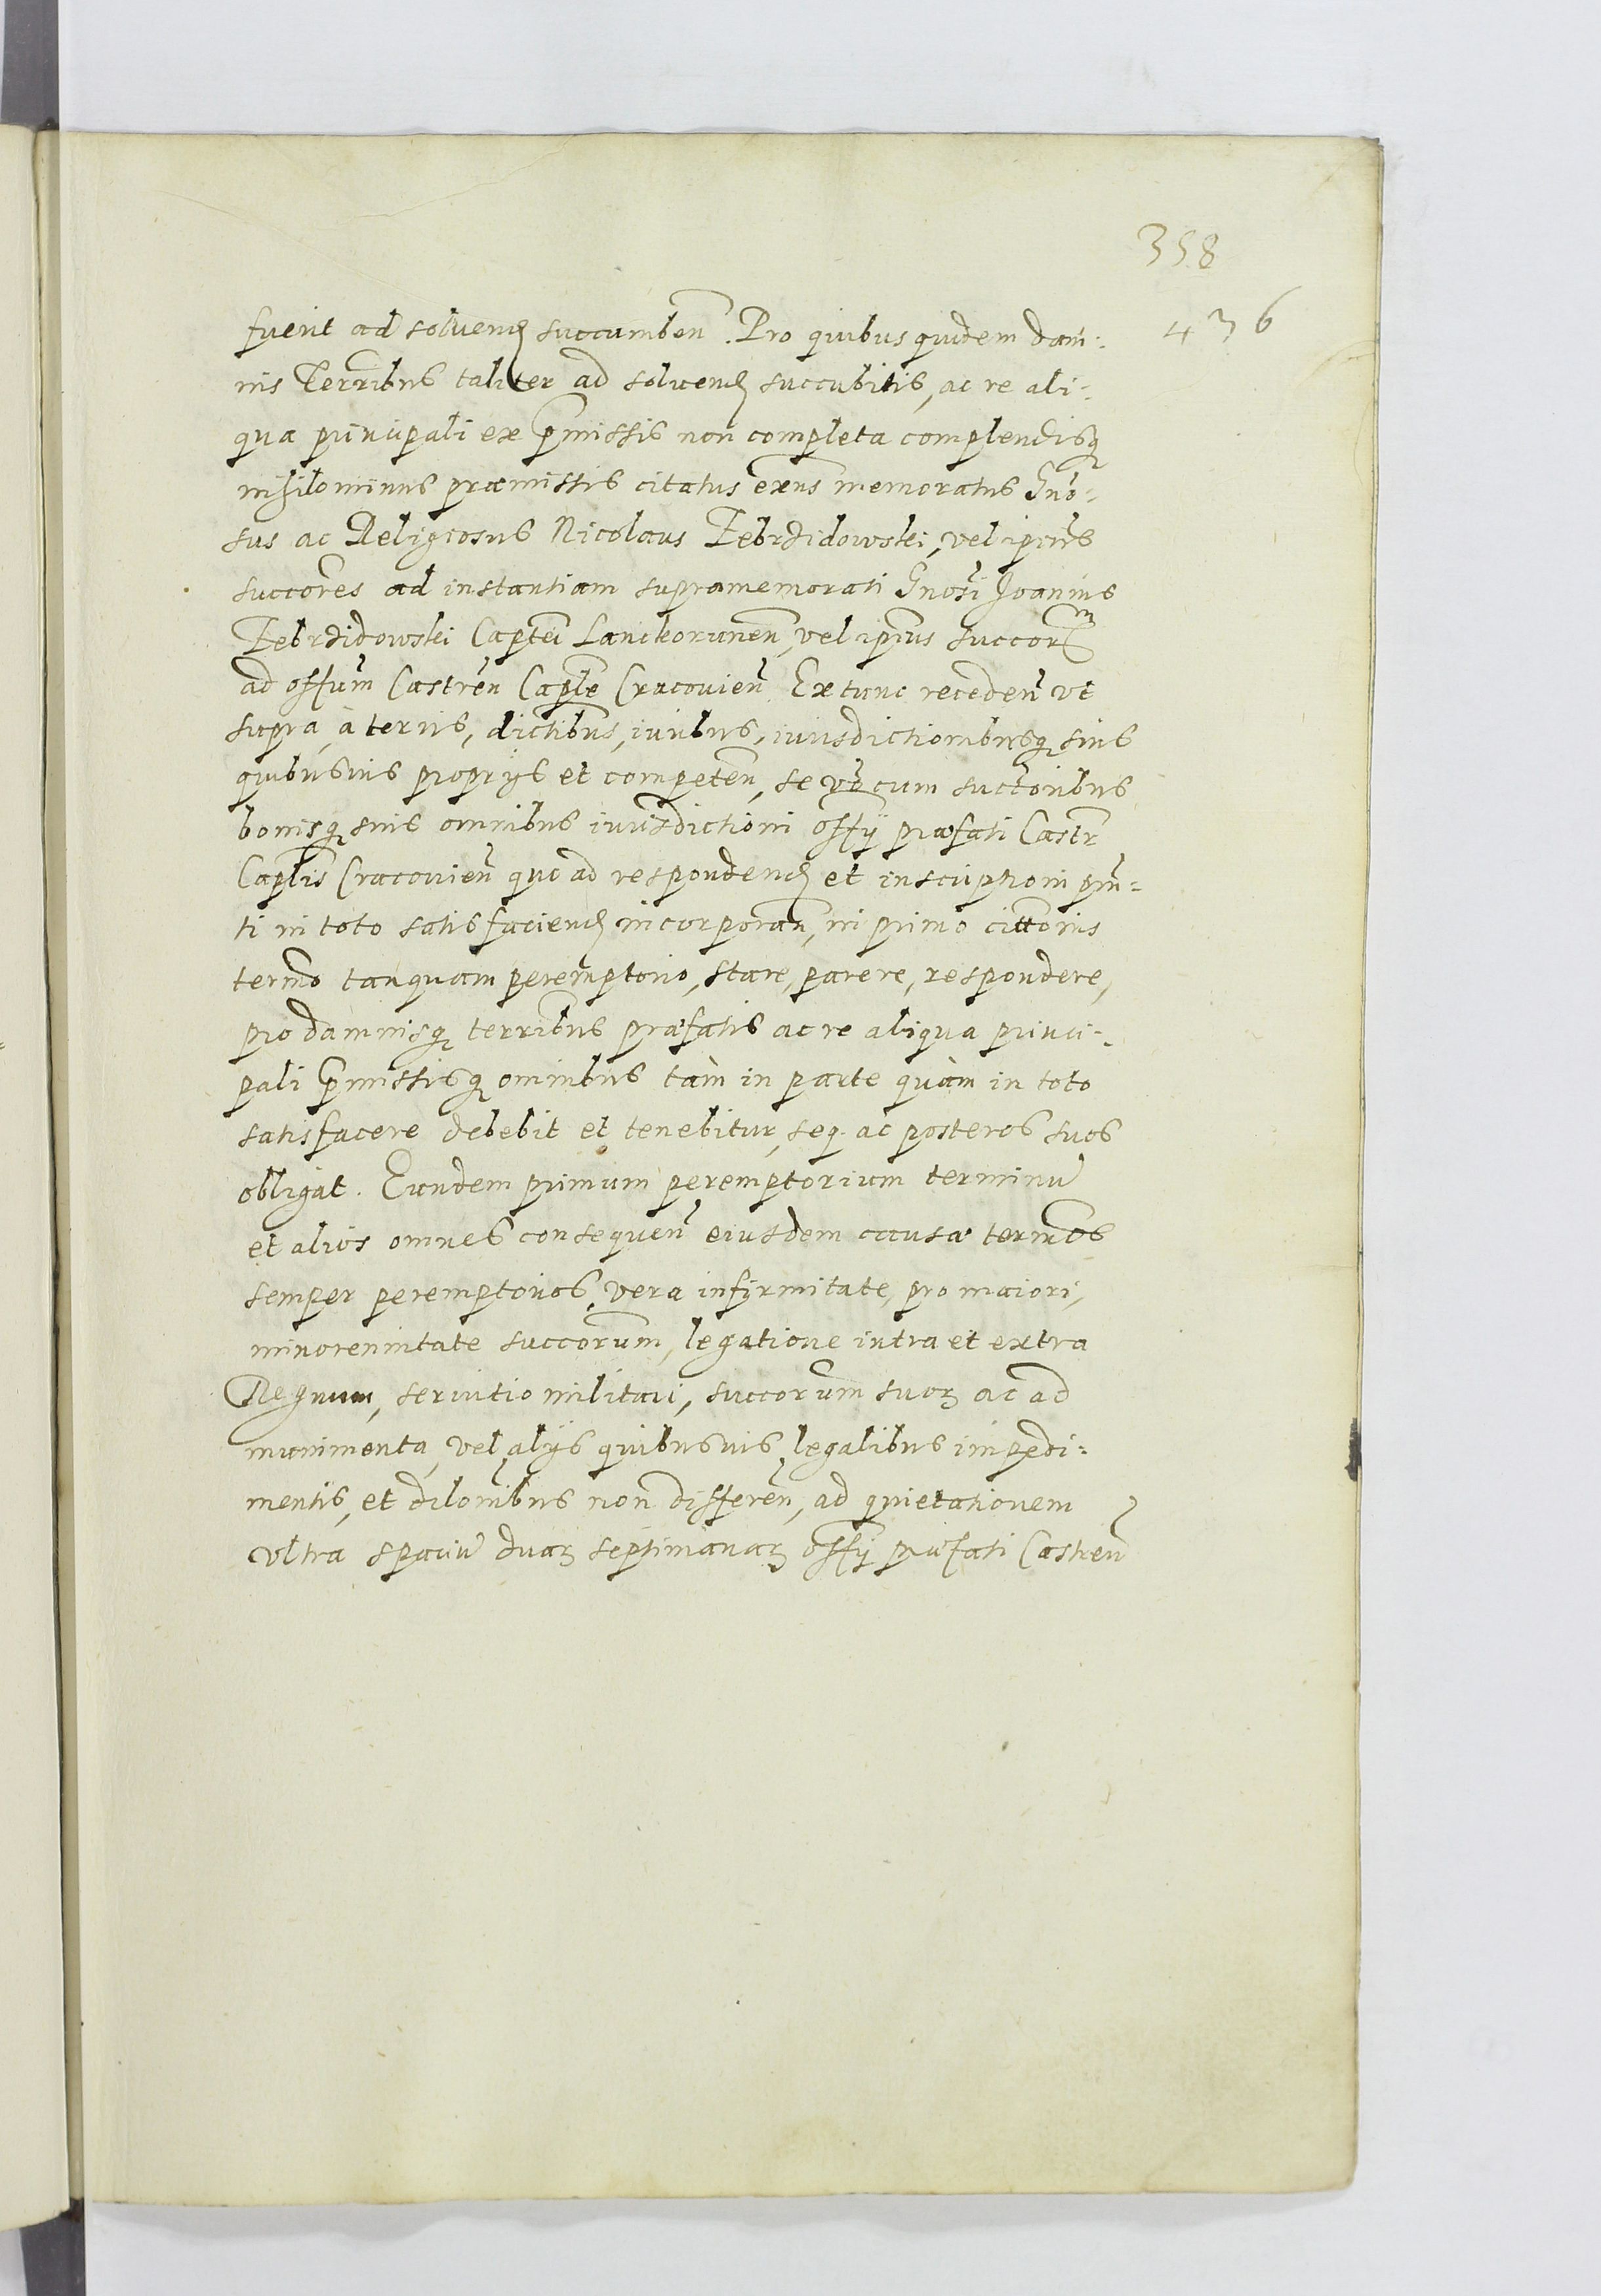 358
436
fuerit ad soluend succumben̄. Pro quibus quidem dam-
nis Terrībus taliter ad soluend succubitis, ac re ali-
qua principali ex p̄missis non completa complendisq
nihilominus præmissis citatus exn̄s memoratus Gn̄o-
sus ac Religiosus Nicolaus Zebrzidowski, vel ipsīus
succōres ad instantiam supramemorati Gnosī Joannis
Zebrzidowski Captēi Lanckorunen̄, vel ipsīus succorūm
ad offūm Castrēn Caplē Cracouien̄ Extunc receden̄ vt
supra, à terris, dictībus, iuribus, iurisdictionibusq suis
quibusuis proprijs et competen̄, se vō cum suctōribus
bonisq suis omnibus iurisdictioni offȳ præfati Castr̄
Caplīs Cracouien̄ quo ad respondend et inscriptioni pn̄-
ti in toto satisfaciend incorporan̄, in primo cittōnis
termō tanquam peremptorio, stare, parere, respondere,
pro damnisq terrībus præfatis ac re aliqua princi-
pali p̄missisq omnibus tàm in parte quàm in toto
satisfacere debebit et tenebitur, seq ac posteros suos
obligat. Eundem primum peremptorium terminū
et alios omnes consequen̄ eiusdem causæ termōs
semper peremptorios, vera infirmitate, pro maiori,
minorennitate succorūm, legatione intra et extra
Regnum, seruitio militari, succorūm suorꝝ ac ad
munimenta, vel alijs quibusuis legalibus impedi-
mentis, et dilōnibus non differen̄, ad quietationem
vltra spaciū duarꝝ septimanarꝝ offȳ præfati Castren̄